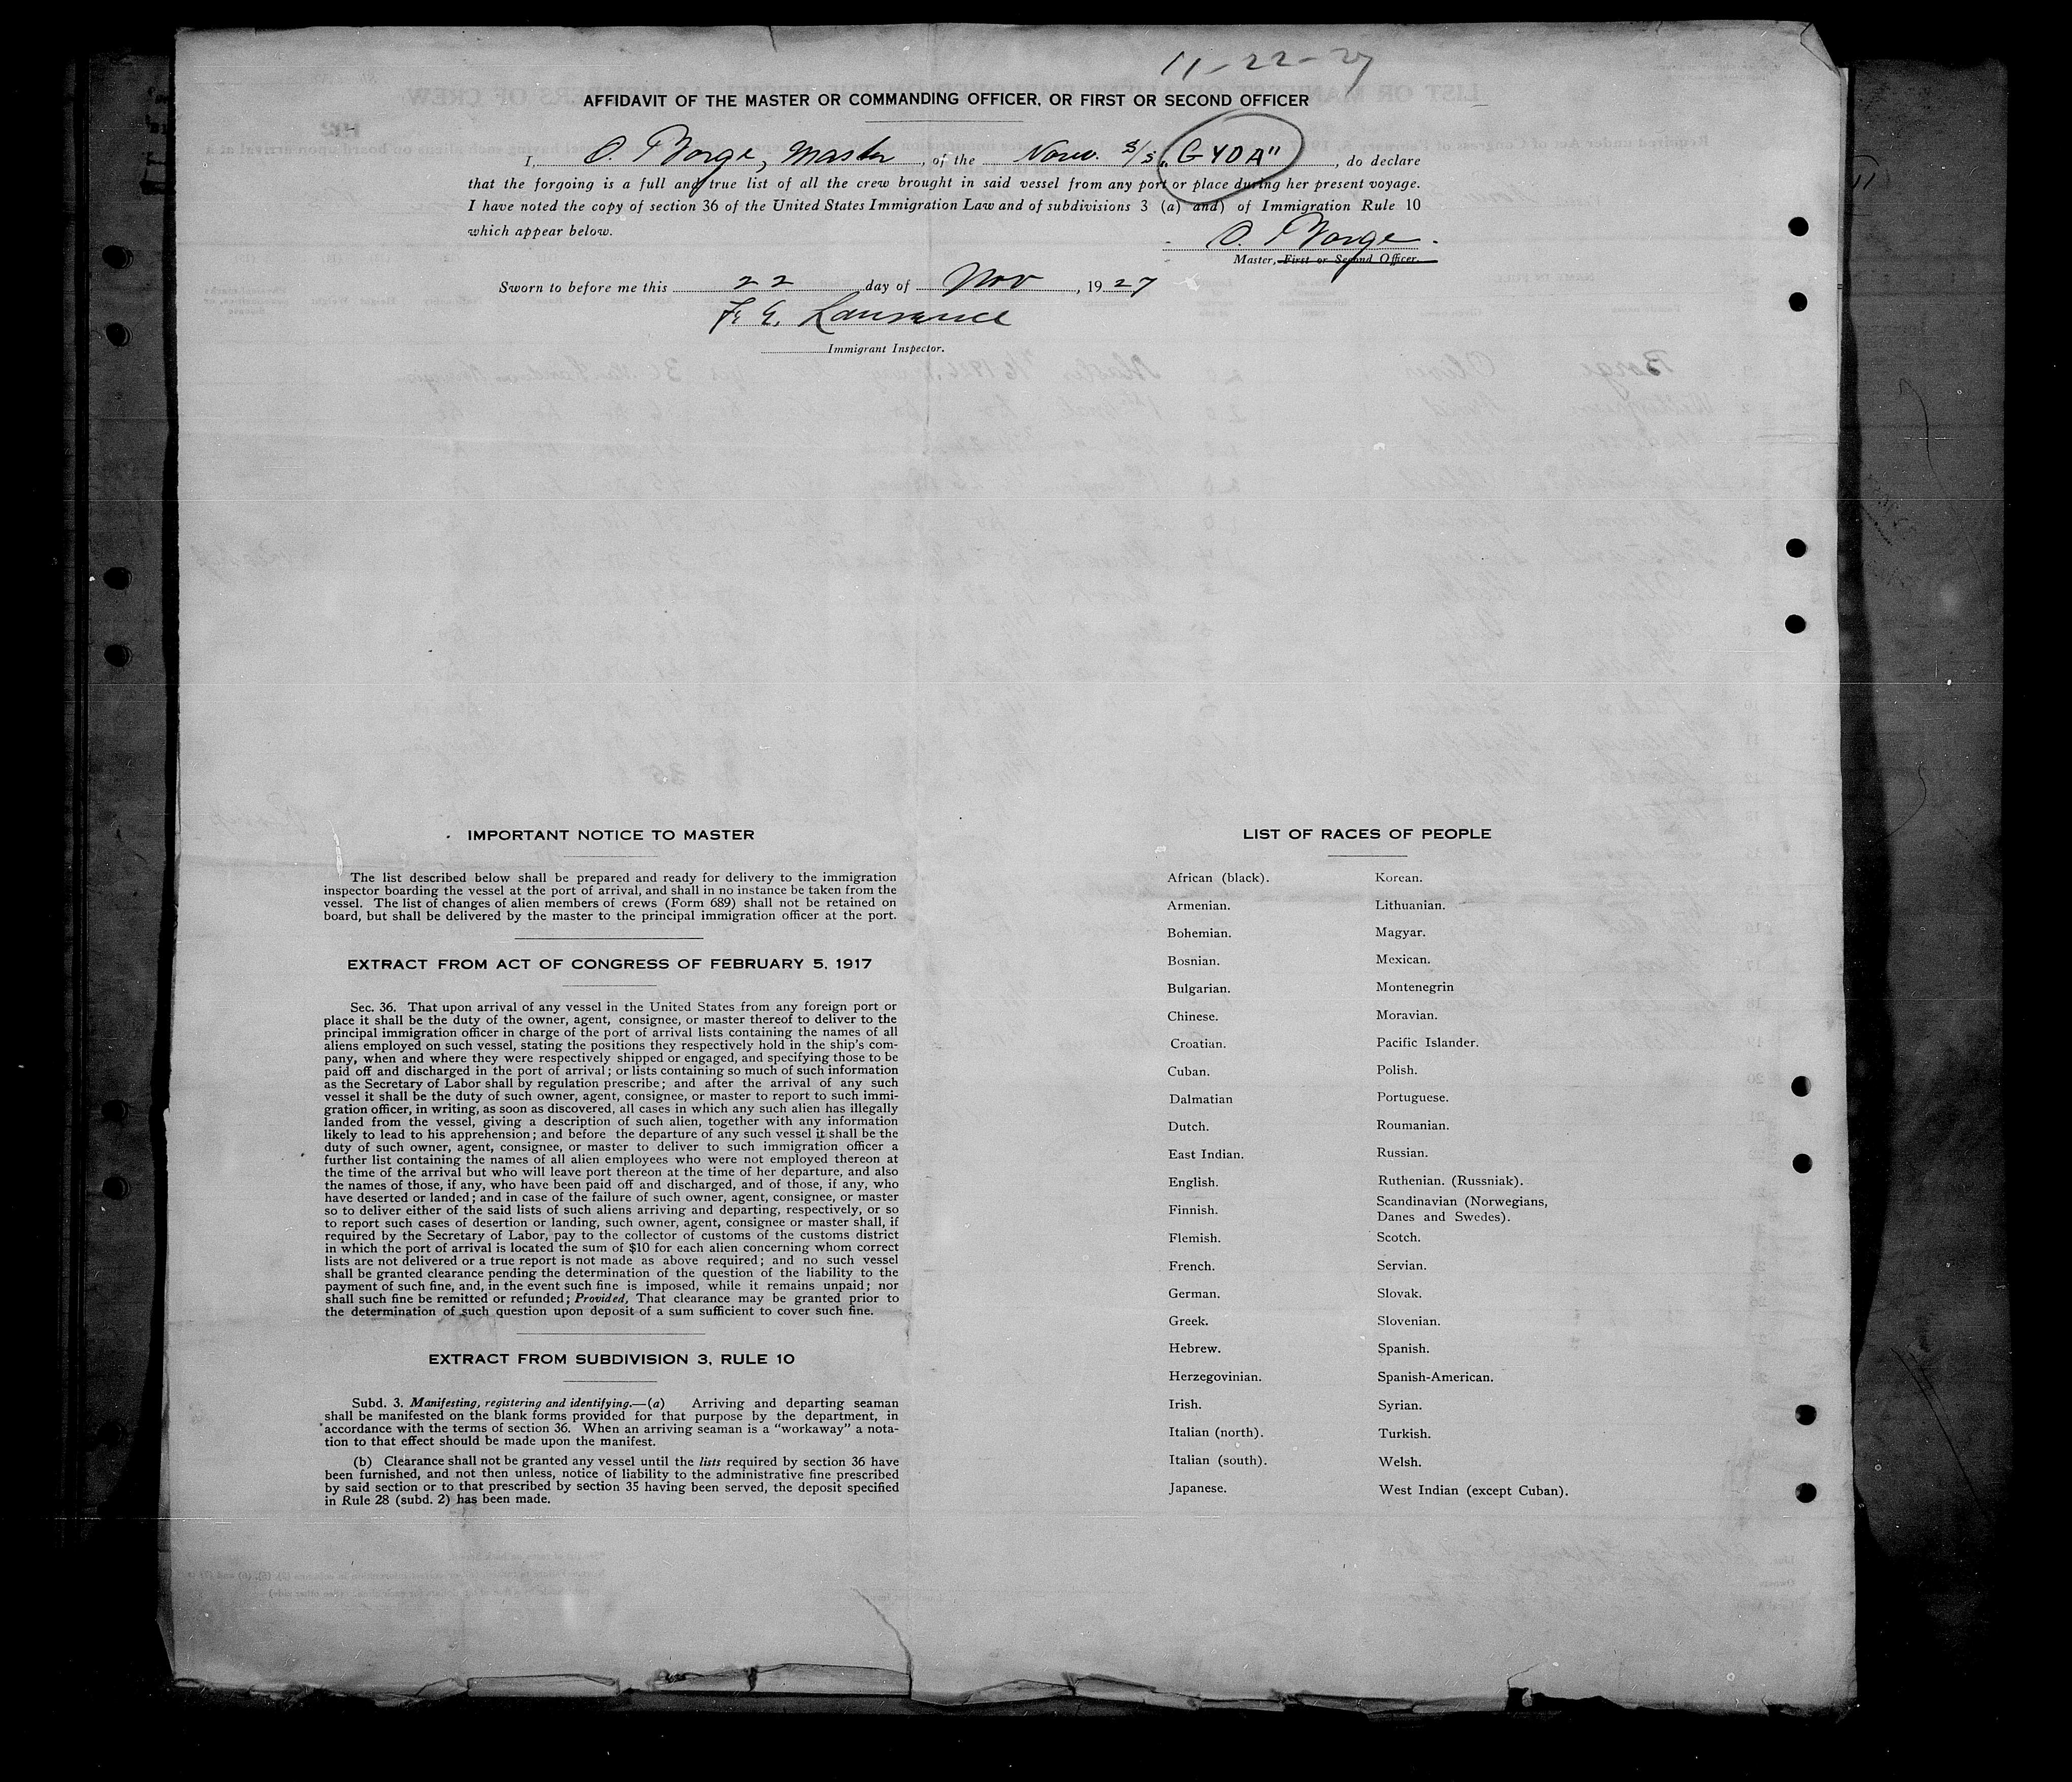 11-22-27
AFFIDAVIT OF THE MASTER OR COMMANDING OFFICER, OR FIRST OR SECOND OFFICER
I, O. Borge, Master, of the Norw. S/S „GYDA", do declare
that the forgoing is a full and true list of all the crew brought in said vessel from any port or place during her present voyage.
I have noted the copy of section 36 of the United States Immigration Law and of subdivisions 3 (a) and) of Immigration Rule 10
which appear below.
O. Borge.
Master, First or Second Officer.
Sworn to before me this 22 day of Nov, 1927
F. E. Lawrence
Immigrant Inspector.
IMPORTANT NOTICE TO MASTER
The list described below shall be prepared and ready for delivery to the immigration
inspector boarding the vessel at the port of arrival, and shall in no instance be taken from the
vessel. The list of changes of alien members of crews (Form 689) shall not be retained on
board, but shall be delivered by the master to the principal immigration officer at the port.
EXTRACT FROM ACT OF CONGRESS OF FEBRUARY 5, 1917
Sec. 36. That upon arrival of any vessel in the United States from any foreign port or
place it shall be the duty of the owner, agent, consignee, or master thereof to deliver to the
principal immigration officer in charge of the port of arrival lists containing the names of all
aliens employed on such vessel, stating the positions they respectively hold in the ship's com-
pany, when and where they were respectively shipped or engaged, and specifying those to be
paid off and discharged in the port of arrival; or lists containing so much of such information
as the Secretary of Labor shall by regulation prescribe; and after the arrival of any such
vessel it shall be the duty of such owner, agent, consignee, or master to report to such immi-
gration officer, in writing, as soon as discovered, all cases in which any such alien has illegally
landed from the vessel, giving a description of such alien, together with any information
likely to lead to his apprehension; and before the departure of any such vessel it shall be the
duty of such owner, agent, consignee, or master to deliver to such immigration officer a
further list containing the names of all alien employees who were not employed thereon at
the time of the arrival but who will leave port thereon at the time of her departure, and also
the names of those, if any, who have been paid off and discharged, and of those, if any, who
have deserted or landed; and in case of the failure of such owner, agent, consignee, or master
so to deliver either of the said lists of such aliens arriving and departing, respectively, or so
to report such cases of desertion or landing, such owner, agent, consignee or master shall, if
required by the Secretary of Labor, pay to the collector of customs of the customs district
in which the port of arrival is located the sum of $10 for each alien concerning whom correct
lists are not delivered or a true report is not made as above required; and no such vessel
shall be granted clearance pending the determination of the question of the liability to the
payment of such fine, and, in the event such fine is imposed, while it remains unpaid; nor
shall such fine be remitted or refunded; Provided, That clearance may be granted prior to
the determination of such question upon deposit of a sum sufficient to cover such fine.
EXTRACT FROM SUBDIVISION 3, RULE 10
Subd. 3. Manifesting, registering and identifying.—(a) Arriving and departing seaman
shall be manifested on the blank forms provided for that purpose by the department, in
accordance with the terms of section 36. When an arriving seaman is a "workaway" a nota-
tion to that effect should be made upon the manifest.
(b) Clearance shall not be granted any vessel until the lists required by section 36 have
been furnished, and not then unless, notice of liability to the administrative fine prescribed
by said section or to that prescribed by section 35 having been served, the deposit specified
in Rule 28 (subd. 2) has been made.
LIST OF RACES OF PEOPLE
African (black).
Armenian.
Bohemian.
Bosnian.
Bulgarian.
Chinese.
Croatian.
Cuban.
Dalmatian
Dutch.
East Indian.
English.
Finnish.
Flemish.
French.
German.
Greek.
Hebrew.
Herzegovinian.
Irish.
Italian (north).
Italian (south).
Japanese.
Korean.
Lithuanian.
Magyar.
Mexican.
Montenegrin
Moravian.
Pacific Islander.
Polish.
Portuguese.
Roumanian.
Russian.
Ruthenian. (Russniak).
Scandinavian (Norwegians,
Danes and Swedes).
Scotch.
Servian.
Slovak.
Slovenian.
Spanish.
Spanish-American.
Syrian.
Turkish.
Welsh.
West Indian (except Cuban).